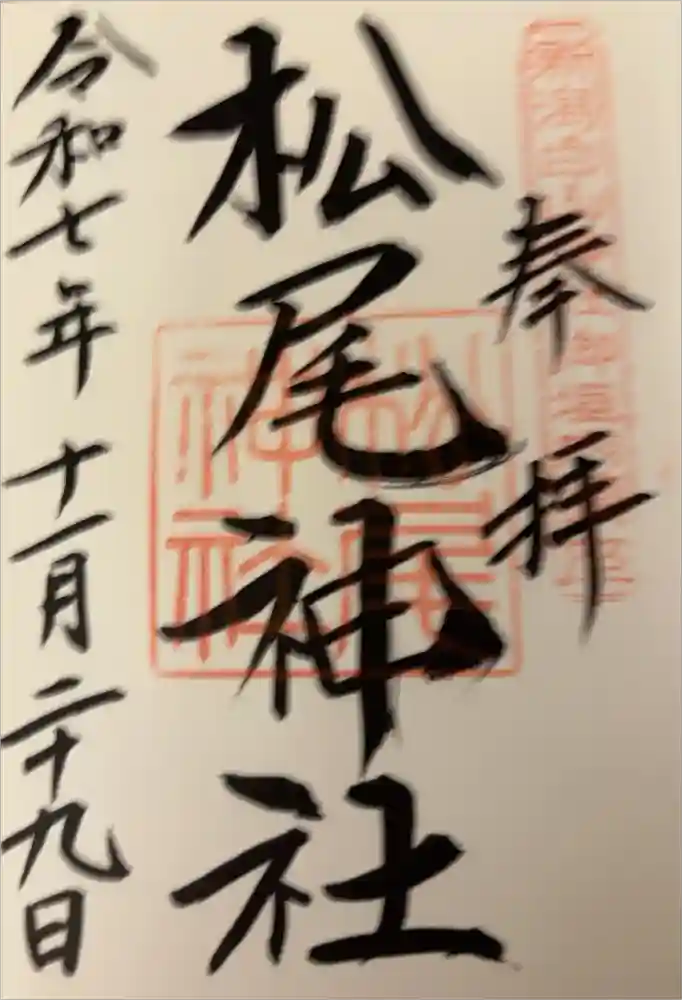 奉拝
松尾神社
令和七年十一月二十九日
松尾神社